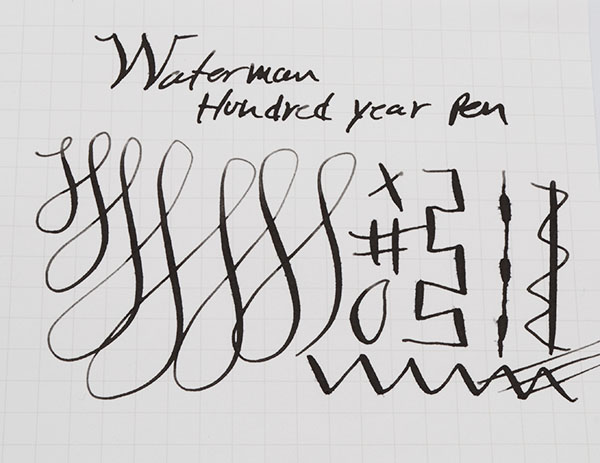 Waterman
Hundred year Pen